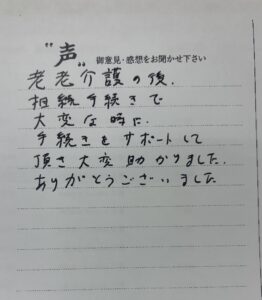 "声" 御意見・感想をお聞かせ下さい
老老介護の後、
相続手続きで
大変な時に、
手続きをサポートして
頂き大変助かりました。
ありがとうございました